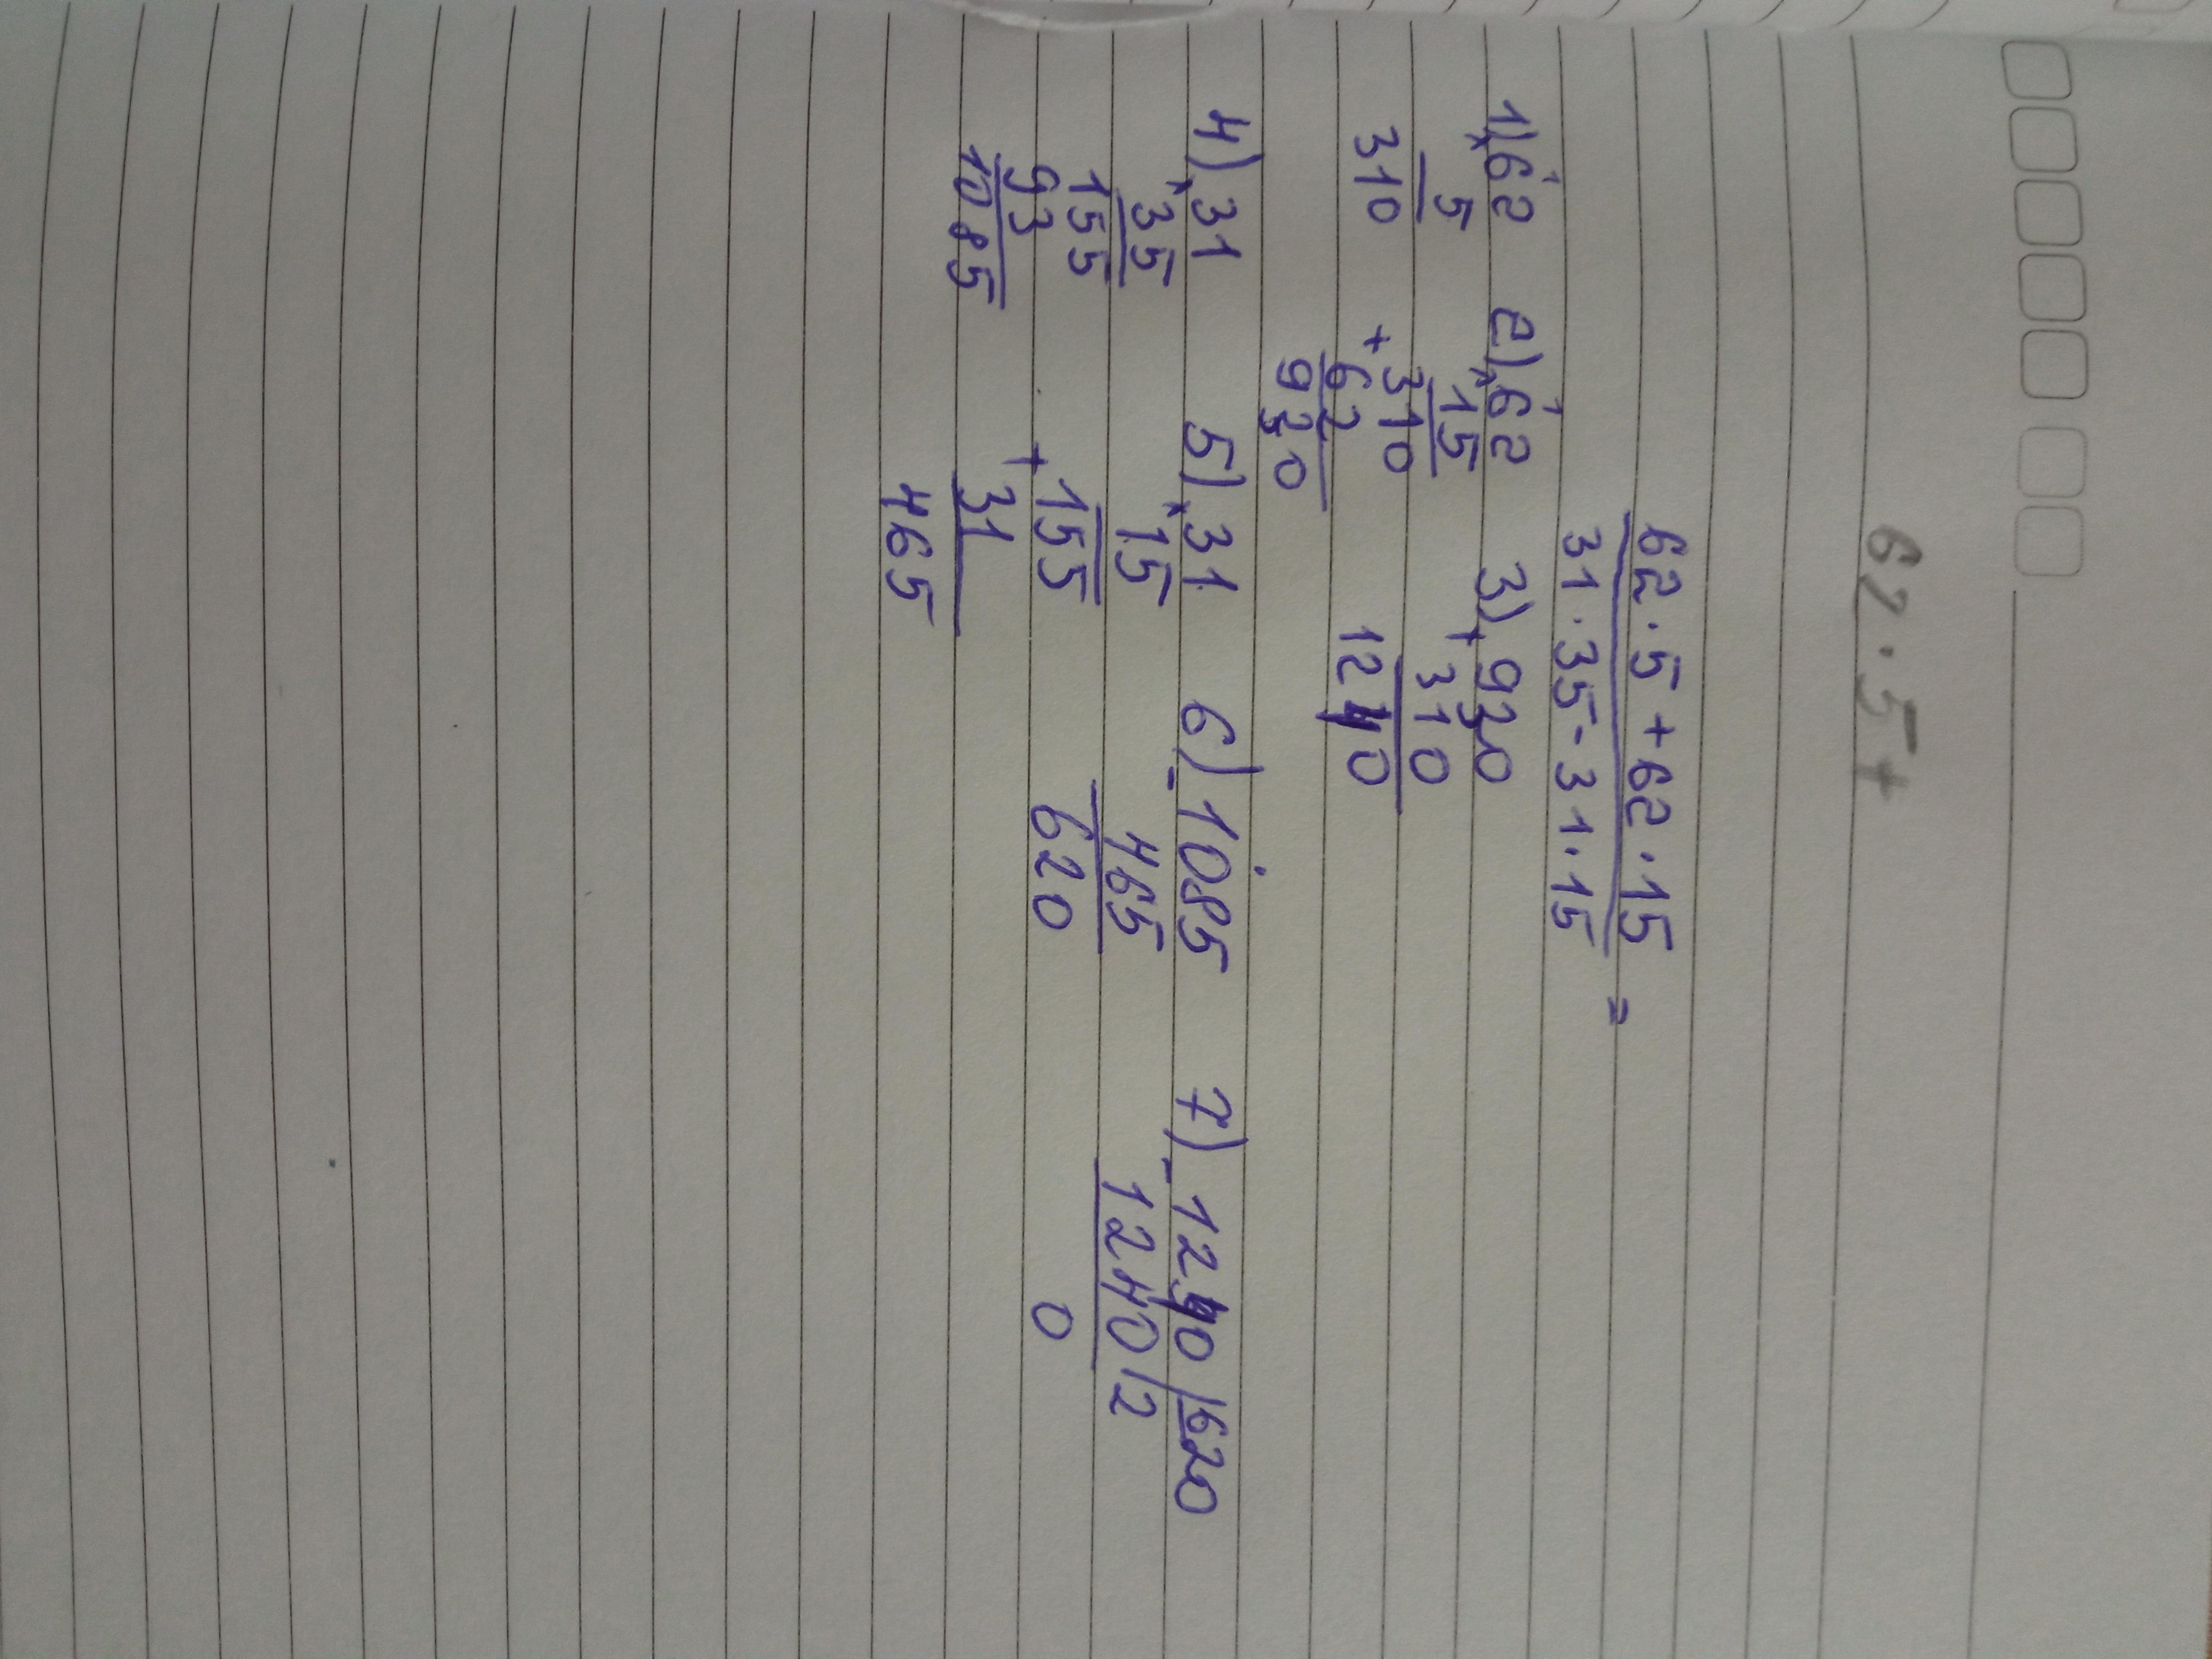 62 · 5 +
62 · 5 + 62 · 15 =
31 · 35 - 31 · 15
1) 62 2) 62 3) 930
× 5 × 15 + 310
310 310 1240
+ 62
930
4) 31 5) 31 6) 1085 7) 1240 | 620
× 35 × 15 - 465 - 1240 | 2
155 155 620 0
93 + 31
1085 465